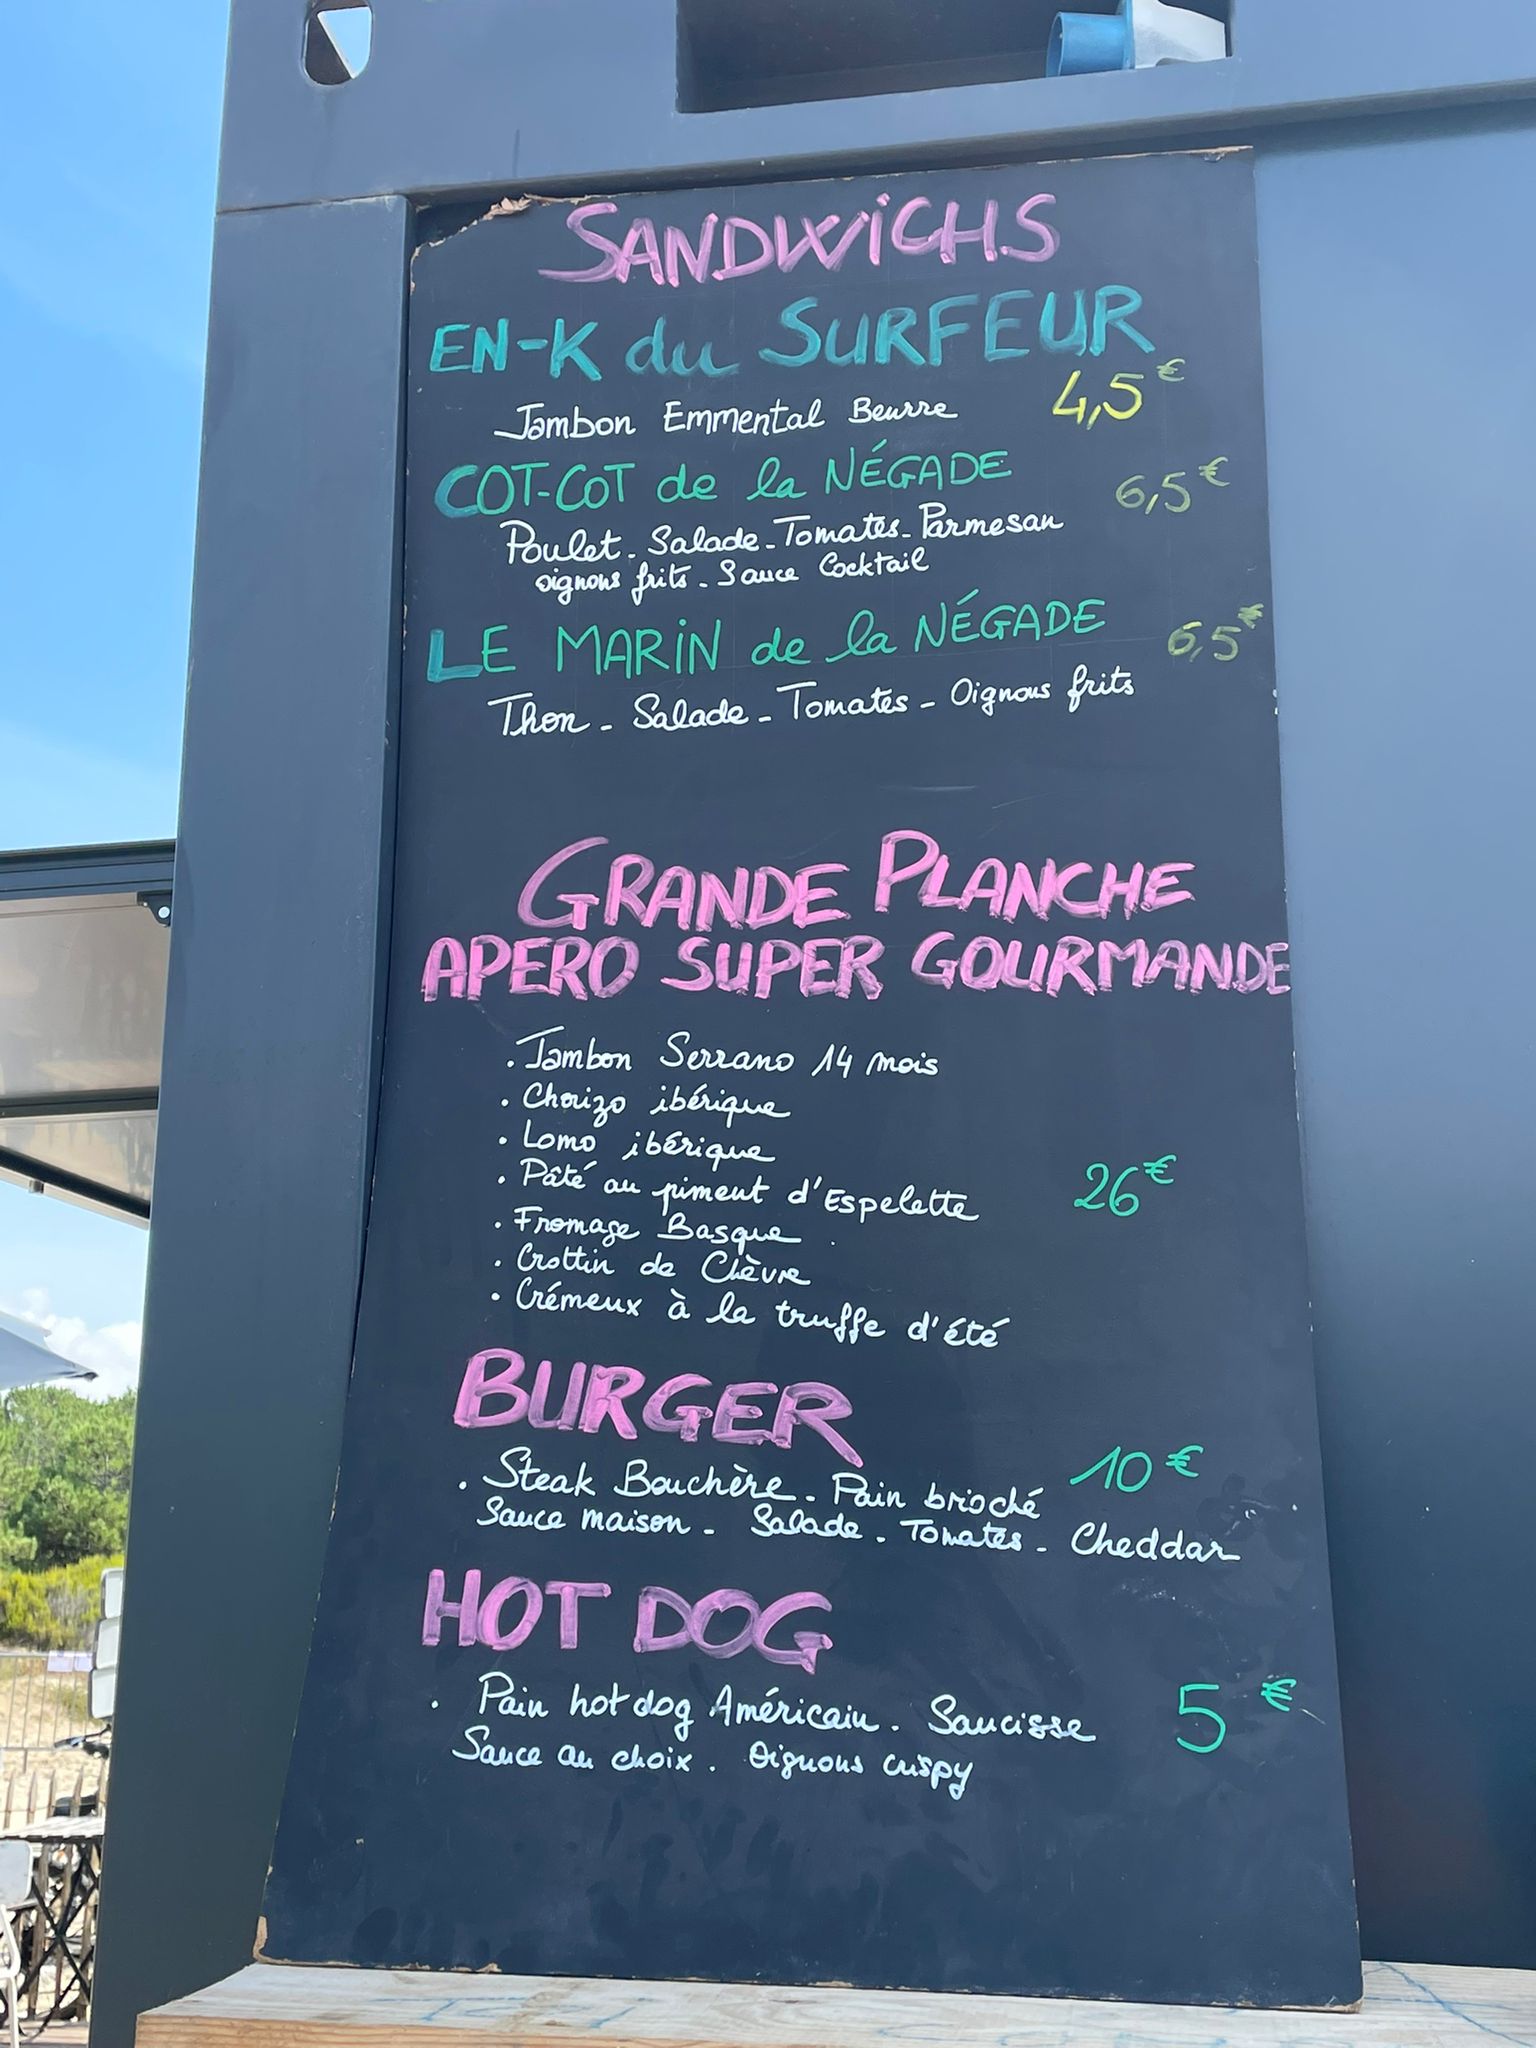 SANDWiCHS
EN-K du SURFEUR
Jambon Emmental Beurre 4,5€
COT-COT de la NÉGADE 6,5€
Poulet - Salade - Tomates - Parmesan
oignons frits - Sauce Cocktail
LE MARiN de la NÉGADE 6,5€
Thon - Salade - Tomates - Oignons frits
GRANDE PLANCHE
APERO SUPER GOURMANDE
• Jambon Serrano 14 mois
• Chorizo ibérique
• Lomo ibérique
• Pâté au piment d'Espelette 26€
• Fromage Basque
• Crottin de Chèvre
• Crémeux à la truffe d'été
BURGER
• Steak Bouchère - Pain brioché 10€
Sauce maison - Salade - Tomates - Cheddar
HOT DOG
• Pain hot dog Américain. Saucisse 5€
Sauce au choix. Oignons crispy